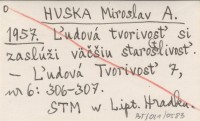 HUSKA Miroslav A.
1957. Ľudová tvorivosť si
zaslúži väčšiu starostlivosť.
— Ľudová Tvorivosť 7,
nr 6: 306-307.
STM w Lipt. Hrádku.